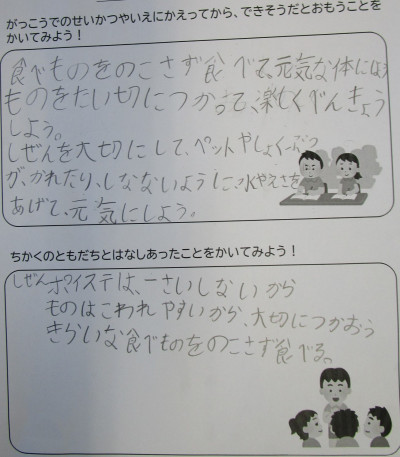 がっこうでのせいかつやいえにかえってから、できそうだとおもうことを
かいてみよう！
食べものをのこさず食べて、元気な体にしよう
ものをたい切につかって、楽しくべんきょう
しよう。
しぜんを大切にして、ペットやしょくぶつ
が、かれたり、しなないように、水やえさを
あげて、元気にしよう。
ちかくのともだちとはなしあったことをかいてみよう！
しぜん ポイステは、一さいしないから
ものはこわれやすいから、大切につかおう
きらいな食べものをのこさず食べる。